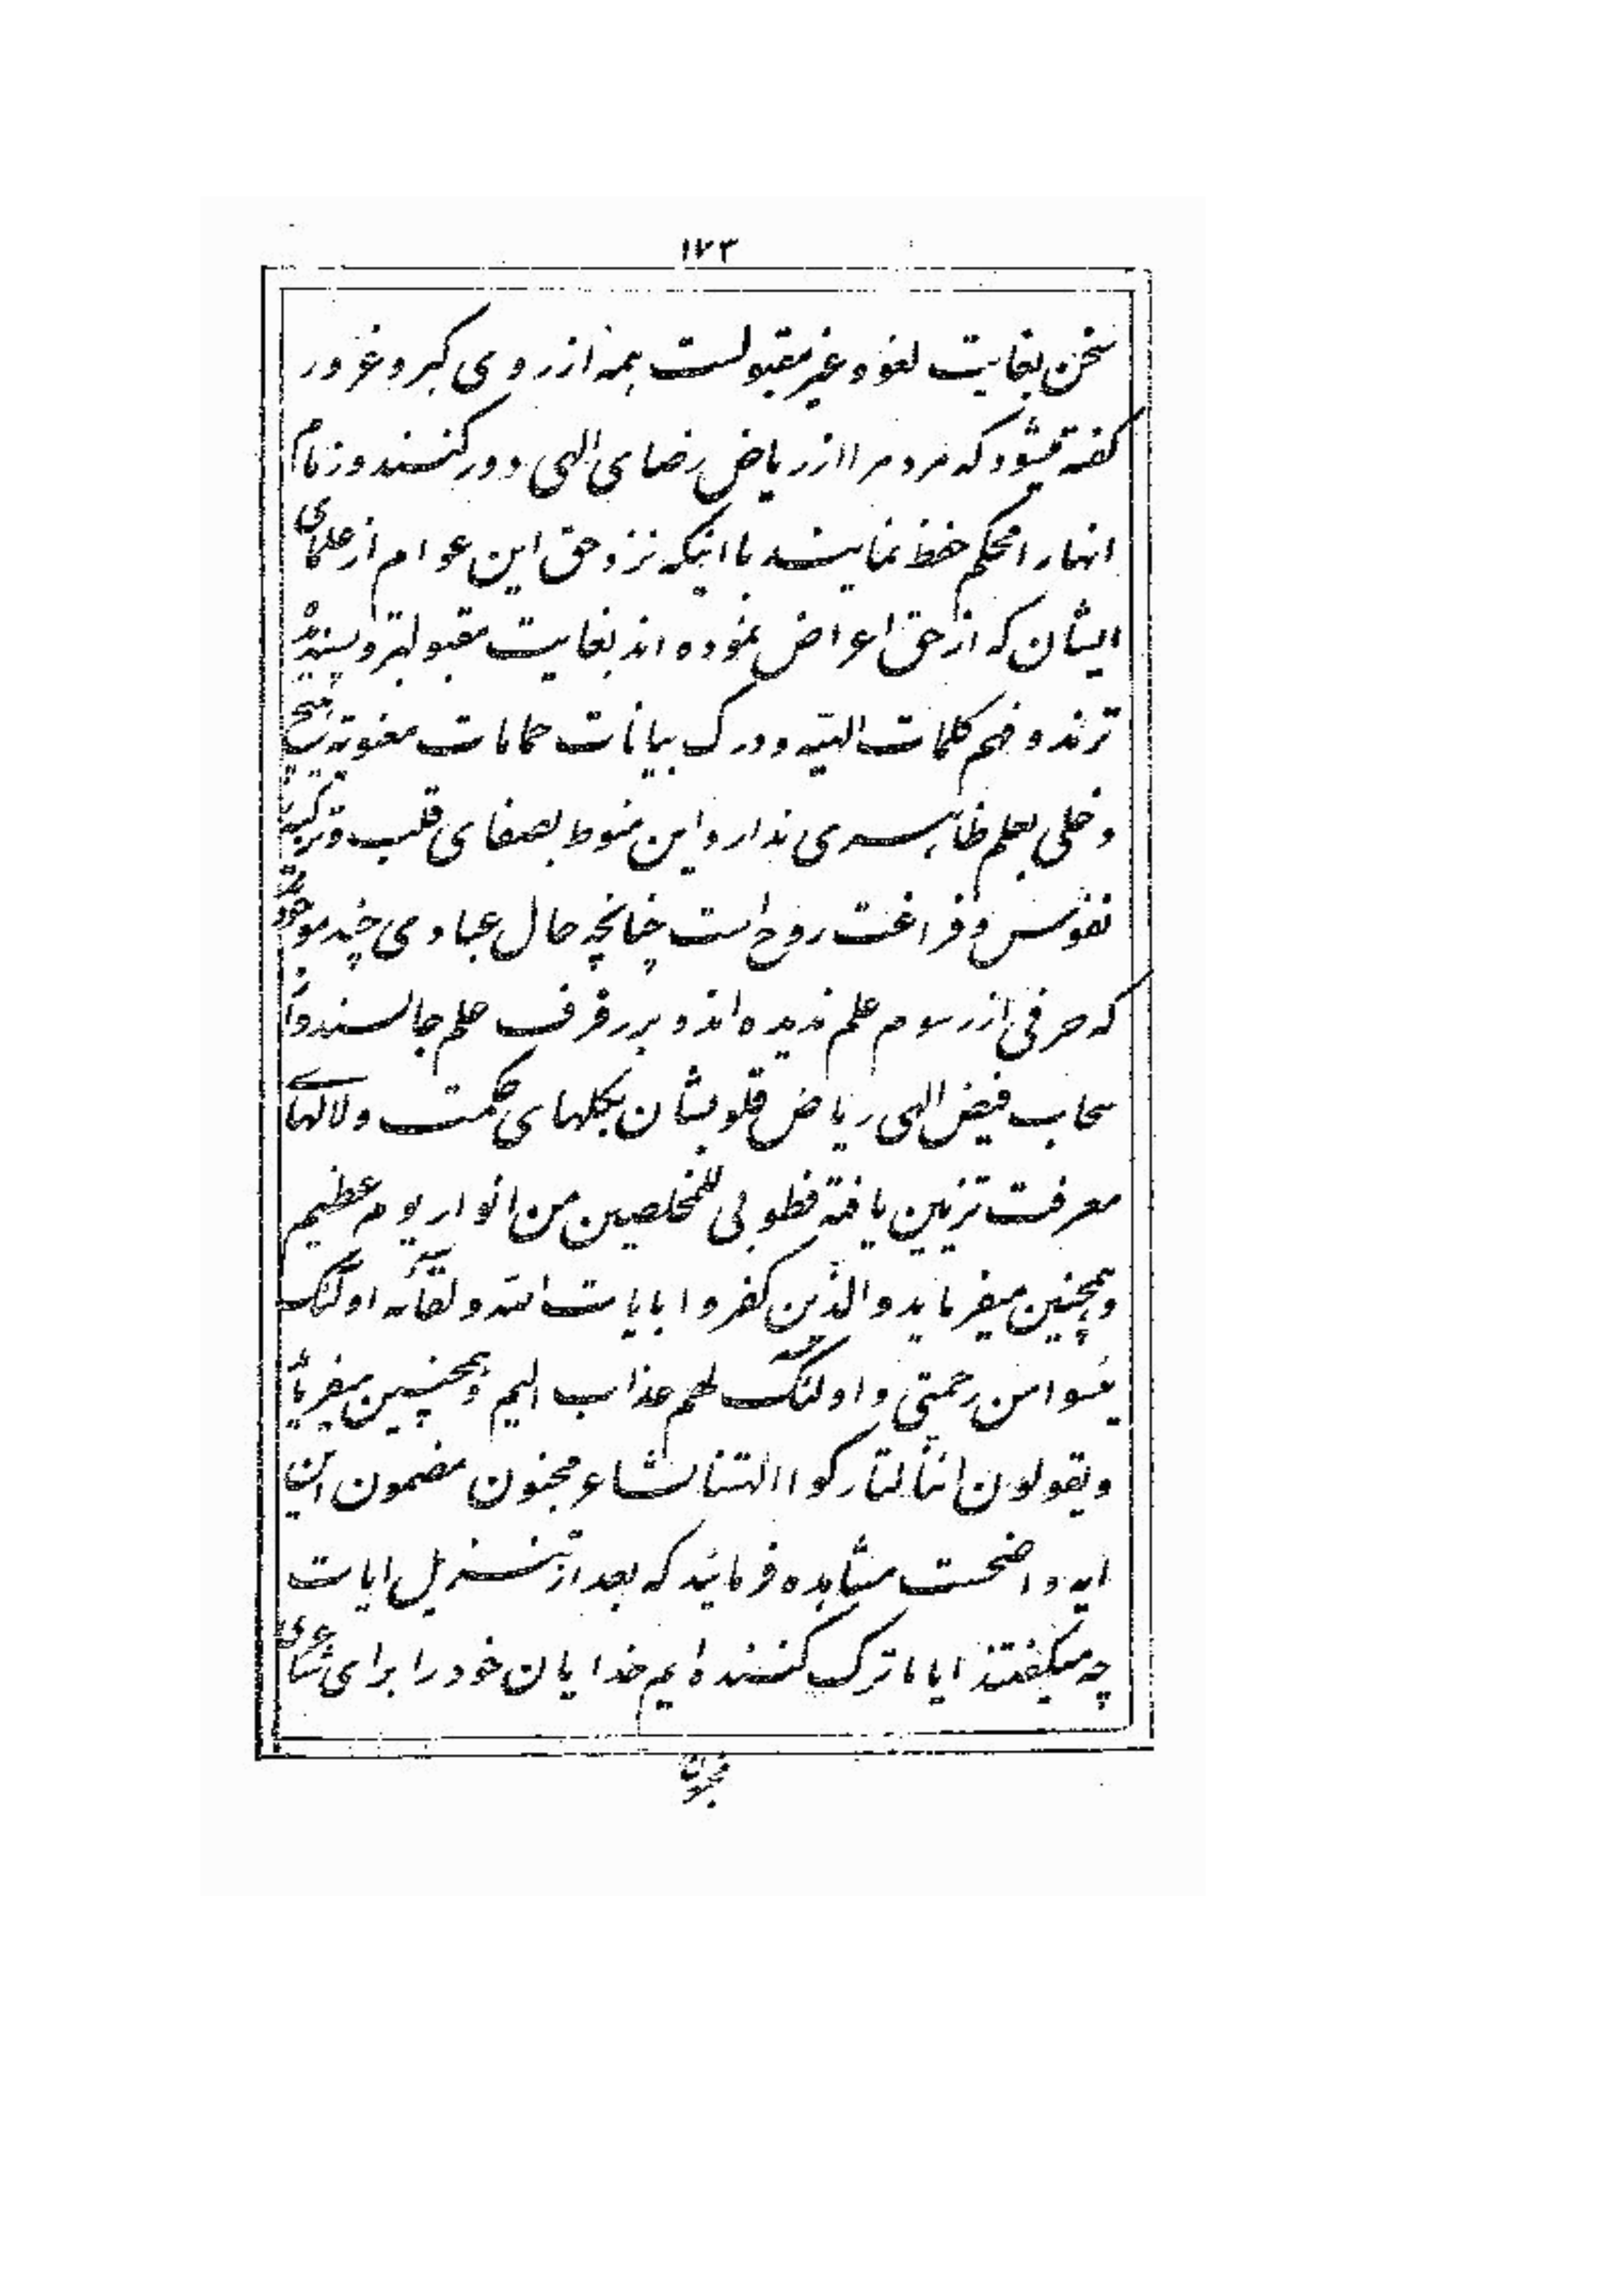 ١٧٣
سخن بغایت لغو و غیر مقبولست همه از روی کبر و غرور
گفته میشود که مردم را از ریاض رضای الهی دور کنند و زمام
انها را محکم حفظ نمایند با اینکه نزد حق این عوام از علمای
ایشان که از حق اعراض نموده اند بغایت مقبولتر و پسندیده
ترند و فهم کلمات الهیه و درک بیانات حمامات معنویه هیچ
دخلی بعلم ظاهری ندارد این منوط بصفای قلب و تزکیه
نفوس و فراغت روح است چنانچه حال عبادی چند موجودند
که حرفی از رسوم علم ندیده اند و بر رفرف علم جالسند و از
سحاب فیض الهی ریاض قلوبشان بگلهای حکمت و لالهای
معرفت تزیین یافته فطوبی للمخلصین من انوار یوم عظیم
و همچنین میفرماید و الذین کفروا بایات الله و لقائه اولئک
یئسوا من رحمتی و اولئک لهم عذاب الیم و همچنین میفرماید
و یقولون ائنا لتارکوا الهتنا لشاعر مجنون مضمون این
ایه واضحست مشاهده فرمائید که بعد از تنزیل ایات
چه میگفتند ایا ما ترک کننده ایم خدایان خود را برای شاعری
مجنون